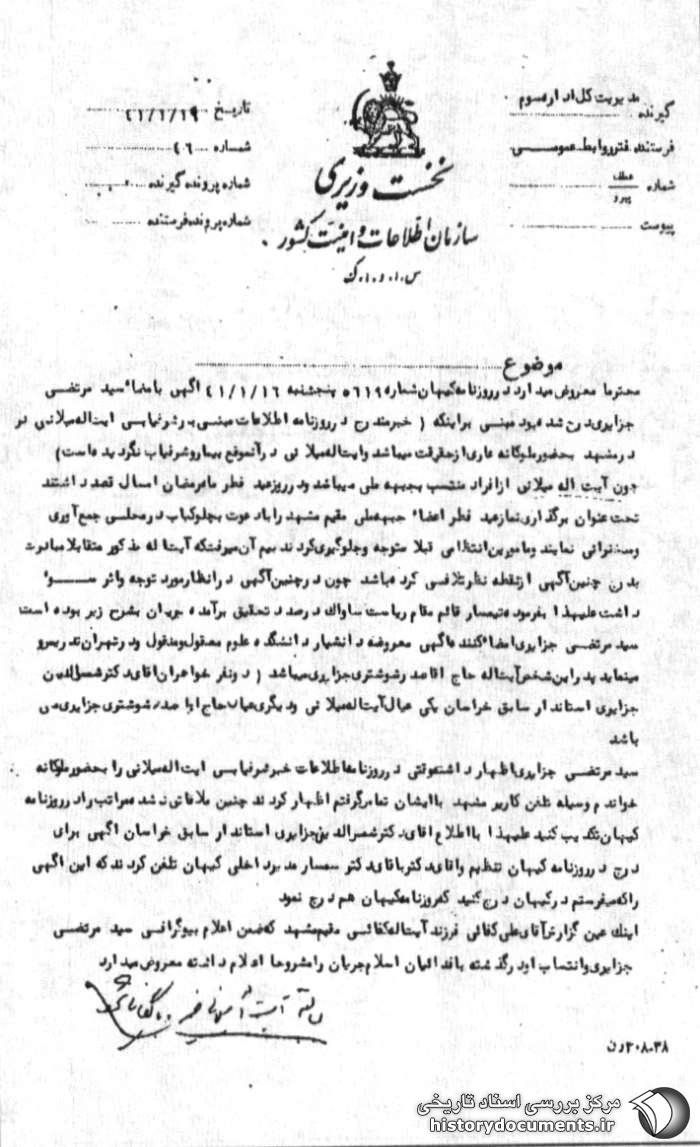 مدیریت کل اداره سوم
گیرنده
فرستنده دفتر روابط عمومی
شماره عطف پیرو
پیوست
تاریخ ۴۱/۱/۱۹
شماره ۴۶
شماره پرونده گیرنده
شماره پرونده فرستنده
نخست وزیری
سازمان اطلاعات و امنیت کشور
س.ا.و.ا.ک
موضوع
محترما معروض میدارد در روزنامه کیهان شماره ۵۶۱۹ پنجشنبه ۴۱/۱/۱۶ آگهی بامضاء سید مرتضی
جزایری درج شده بود مبنی براینکه ( خبر مندرج در روزنامه اطلاعات مبنی بر شرفیابی ایت اله میلانی
در مشهد بحضور ملوکانه عاری از حقیقت میباشد و ایت اله میلانی در آنموقع بیمار و شرفیاب نگردیده است)
چون آیت اله میلانی از افراد منتسب بجبهه ملی میباشد و در روز عید فطر ماه رمضان امسال قصد داشتند
تحت عنوان برگذاری نماز عید فطر اعضاء جبهه ملی مقیم مشهد را با دعوت بچلوکباب در مجلسی جمع آوری
و سخنرانی نمایند و مامورین انتظامی قبلا متوجه و جلوگیری کردند بیم آن میرفت که آیت اله مذکور متقابلا مبادرت
بدرج چنین آگهی از نقطه نظر تلافی کرده باشد چون درج چنین آگهی در انظار مورد توجه و اثر سوء
داشت علیهذا بفرموده تیمسار قائم مقام ریاست ساواک در صدد تحقیق برآمده جریان بشرح زیر بوده است
سید مرتضی جزایری امضاء کننده آگهی معروضه دانشیار دانشکده علوم معقول و منقول و در تهران تدریس و
مینماید پدر این شخص آیت اله حاج اقا صدر شوشتری جزایری میباشد ( دو نفر خواهران اقای دکتر شمس الدین
جزایری استاندار سابق خراسان یکی عیال آیت اله میلانی و دیگری عیال حاج اقا صدر شوشتری جزایری می
باشد
سید مرتضی جزایری اظهار داشته وقتی در روزنامه اطلاعات خبر شرفیابی ایت اله میلانی را بحضور ملوکانه
خواندم وسیله تلفن کاریر مشهد با ایشان تماس گرفتم اظهار کردند چنین ملاقاتی نشد مراتب را در روزنامه
کیهان تکذیب کنید علیهذا با اطلاع اقای دکتر شمس الدین جزایری استاندار سابق خراسان اگهی برای
درج در روزنامه کیهان تنظیم و اقای دکتر باقای دکتر سمسار مدیر داخلی کیهان تلفن کردند که این اگهی
را که میفرستم در کیهان درج کنید که روزنامه کیهان هم درج نمود
اینک عین گزارش آقای علی کفائی فرزند آیت اله کفائی مقیم مشهد که ضمن اعلام بیوگرافی سید مرتضی
جزایری و انتساب او در گذشته با فدائیان اسلام جریان را مشروحا اعلام داشته معروض میدارد
۲۰۸۰۳۸ن
مرکز بررسی اسناد تاریخی
historydocuments.ir